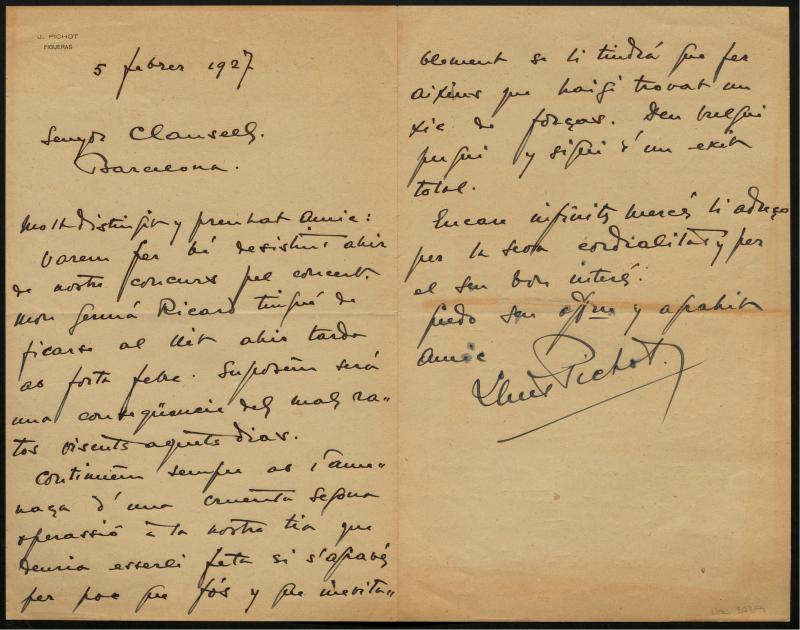 J. PICHOT
FIGUERAS
5 febrer 1927
Senyor Clausells.
Barcelona.
Molt distingit y preuhat amic:
Varem fer bé desistint ahir
de nostre concurs pel concert.
Mon germá Ricard tingué de
ficarse al llit ahir tarda
ab forta febre. Suposém será
una conseqüencie dels mals ra-
tos viscuts aquets dias.
Continuém sempre ab l'ame-
naça d'una cruenta segona
operassió à la nostre tia que
deuria esserli feta si s'apavés
per poc que fós y que inevita-
blement se li tindrá que fer
aixins que haigi trovat un
xic de forças. Deu vulgui
pugui y sigui d'un exit
total.
Encare infinits mercés li adreço
per la seva cordialitat y per
el seu bon interés.
Quedo seu y agrahit
amic
Lluis Pichot.